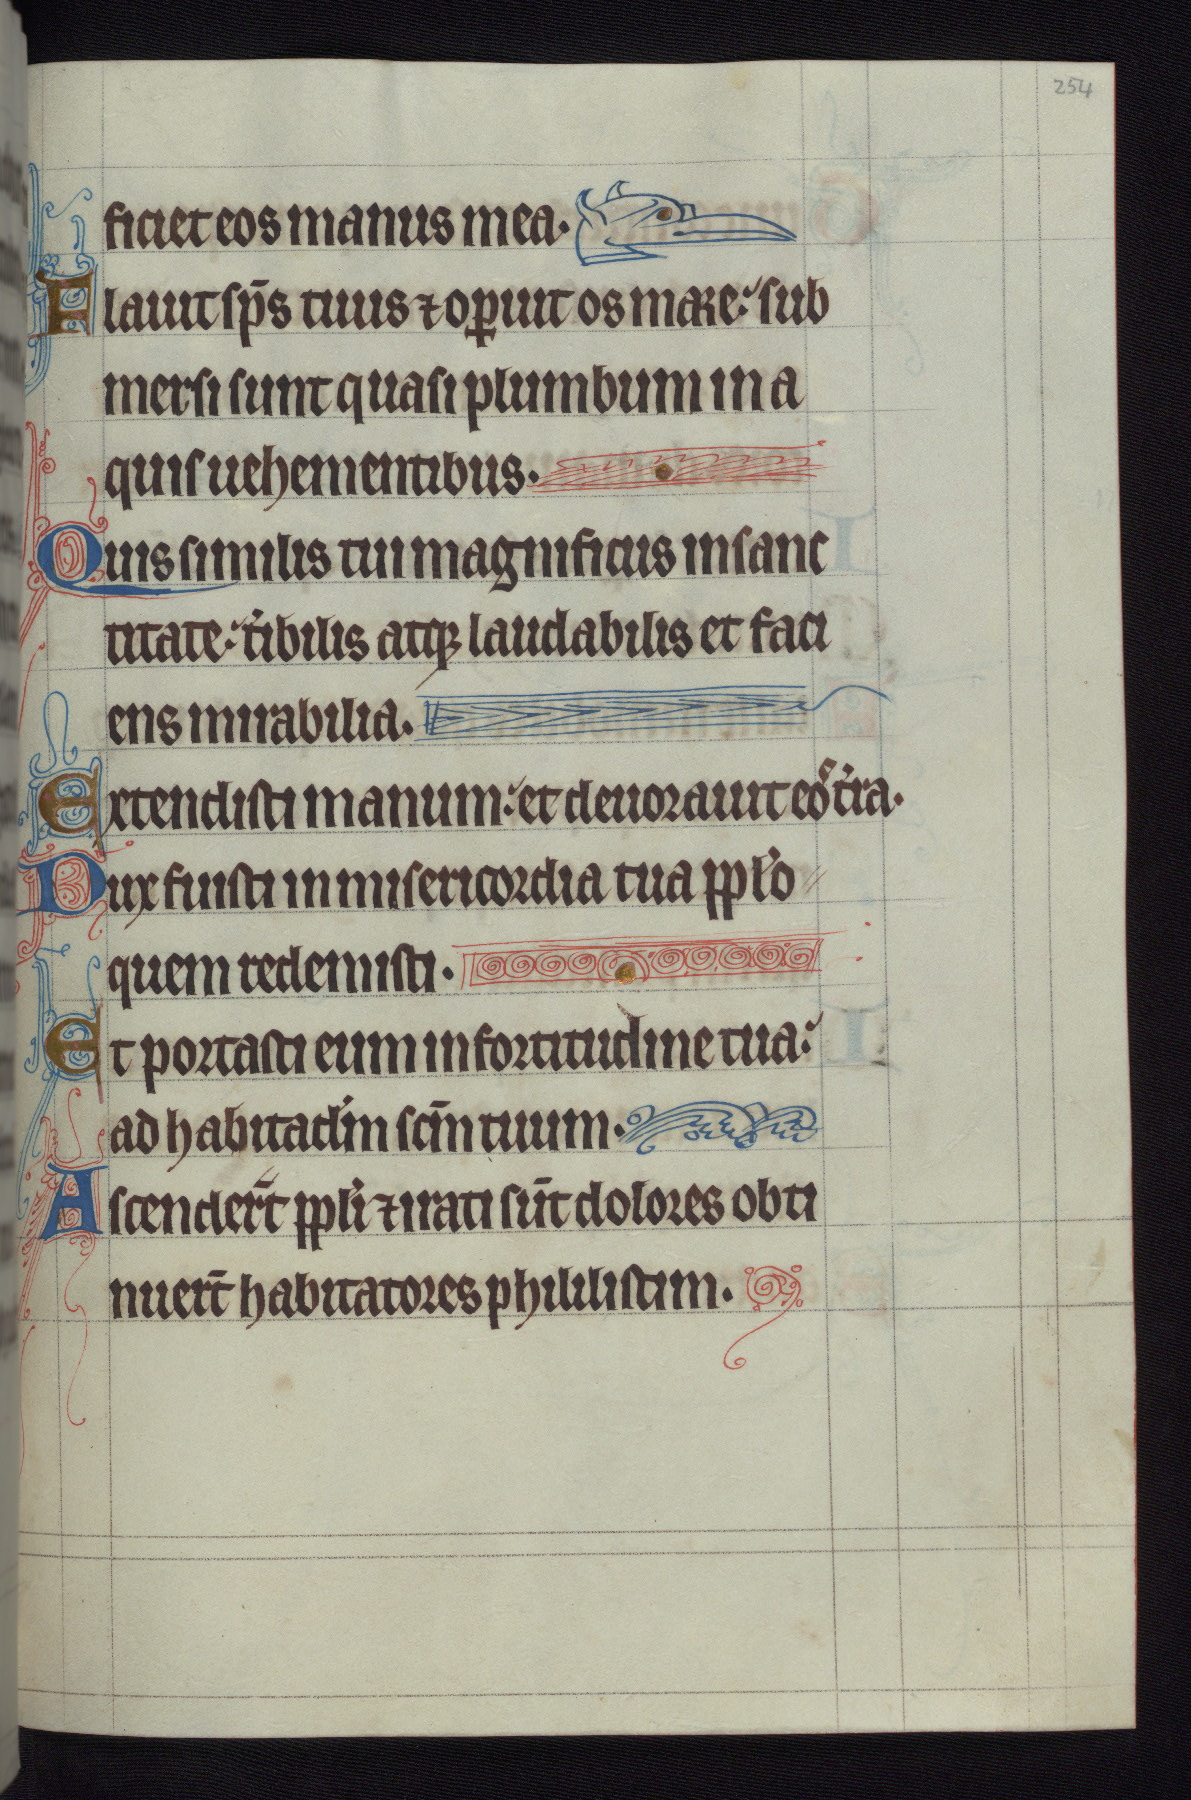 254
ficiet eos manus mea.
Flauit sp̄s tuus ⁊ oꝑuit os mare: sub
mersi sunt quasi plumbum in a
quis uehementibus.
Quis similis tui magnificus in sanc
titate: t̉ibilis atqꝫ laudabilis et faci
ens mirabilia.
Extendisti manum: et deuorauit eoˢ t̉ra.
Dux fuisti in misericordia tua ppl̉o //
quem redemisti.
Et portasti eum in fortitudine tua:
ad habitacl̉m sc̄m tuum.
Ascender̄t ppl̉i ⁊ irati sūt dolores obti
nuer̄t habitatores phililistim.